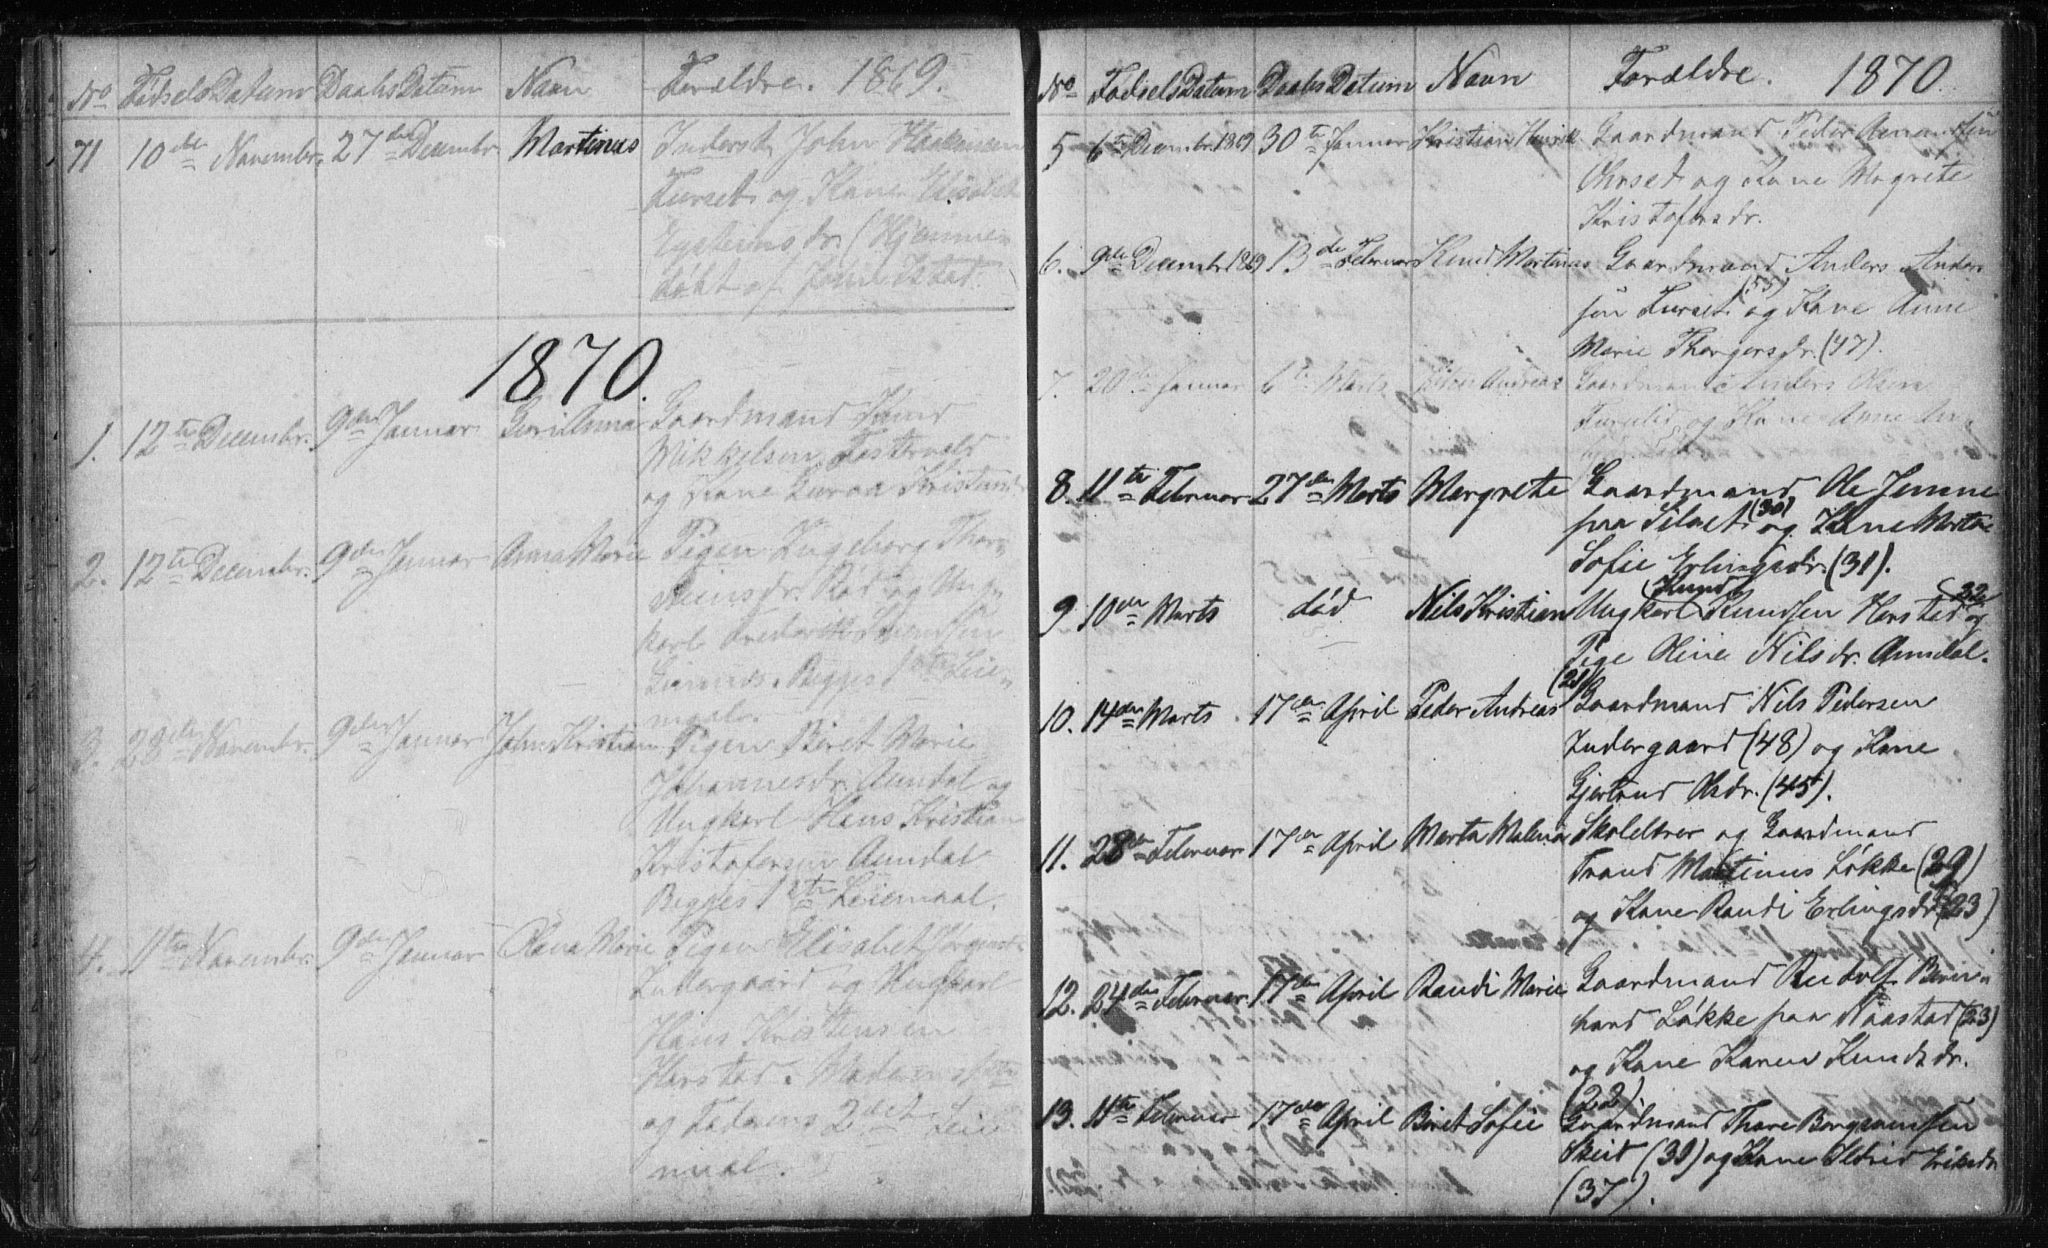 No Fødsels Datum Daabs Datum Navn Forældre. 1869.
71 10de Novembr. 27de Decembr Martinus Inderst John Haakensen
Furset og Kone Elisabet
Eystensdr. (Hjemme-
døbt af Jon Istad.
1870.
1. 12te Decembr. 9de Januar Guri Anna Gaardmand Knud
Mikkelsen
og Kone Guroa Kristens
2. 12te Decembr. 9de Januar Anna Marie Pigen Ingeborg Thor-
steinsdr. Rød og Ung-
karl Frederik Svendsen
Begges 1ste Leie-
maal.
3. 28de Novembr. 9de Januar John Kristian Pigen Beret Marie
Johannesdr. Aundal og
Ungkarl Hans Kristian
Kristofersen Aundal
Begges 1ste Leiemaal.
4. 11te Novembr. 9de Januar Olava Marie Pigen Elisabet Jørgensdr.
Indergaard og Ungkarl
Hans Kristensen
Harstad. Moderens 1ste
og Faderens 2det Leie
maal.
No Fødsels Datum Daabs Datum Navn Forældre. 1870.
5. 6te Decembr 1869 30te Januar Kristian Henrik Gaardmand Peder Amundsen
og Kone Magrete
Kristofersdr.
6. 9de Decembr 1869 13de Februar Knud Martinus Gaardmand Anders Anders
sen Furset (55) og Kone Anne
Marie Thorgersdr. (47).
7. 20de Januar 6te Marts Andreas Gaardmand Anders Olsen
og Kone Anne An-
8. 11te Februar 27de Marts Margrete Gaardmand Ole Jensen
paa Silset (30) og Kone Marta
Sofie Erlingsdr. (31).
9 10de Marts død Nils Kristian Ungkarl Knud Knudsen Harstad (32) og
Pige Oline Nilsdr. Aundal.
(21)
10. 14de Marts 17de April Peder Andreas Gaardmand Nils Pedersen
Indergaard (48) og Kone
Gjertrud Olsdr. (45).
11. 28de Februar 17de April Marta Malena Skolelærer og Gaardmand
Trond Martinus Løkke (29)
og Kone Randi Erlingsdr. (23)
12. 24de Februar 17de April Randi Marie Gaardmand Rudolf Bern-
hard Løkke paa Naastad (23)
og Kone Karen Knudsdr.
(22).
13. 11te Februar 17de April Beret Sofie Gaardmand Thore Bergsvensen
Skeid (39) og Kone Ildrid Eriksdr
(37).